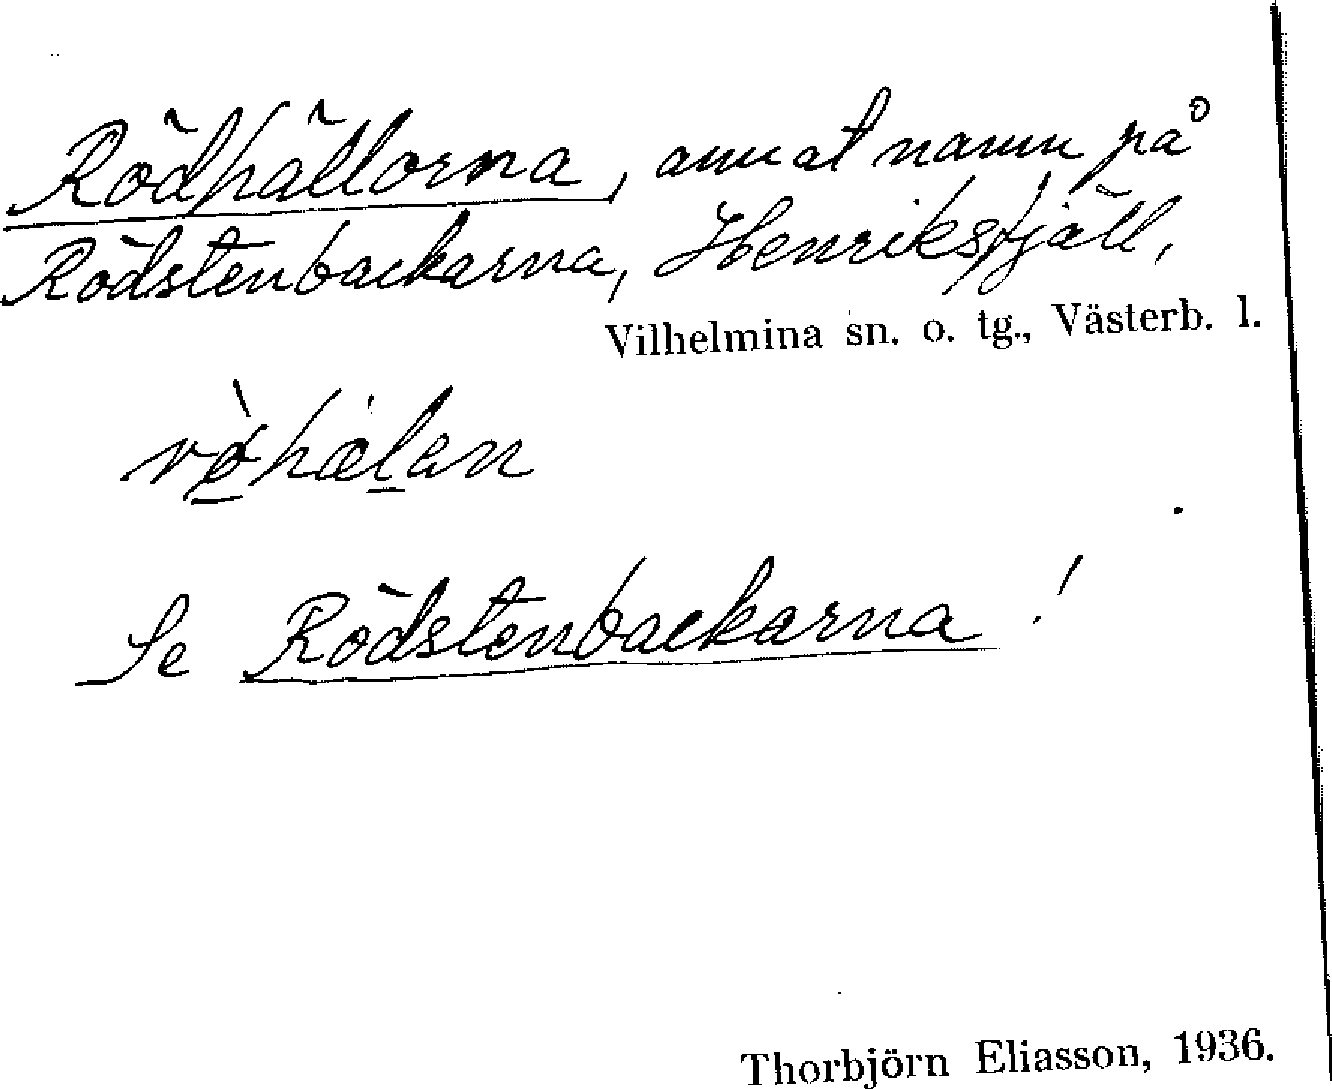 Rödhällorna, annat namn på
Rödstenbackarna, Henriksfjäll,
Vilhelmina sn. o. tg., Västerb. l.
rø̀hælan
Se Rödstenbackarna!
Thorbjörn Eliasson, 1936.